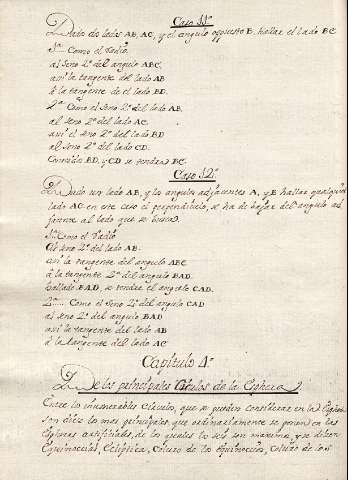 Caso 11º
Dado dos lados AB, AC, y el angulo oppuesto B. hallar el lado BC
1ª Como el Radio
al seno 2º del angulo ABC
assi la tangente del lado AB
à la tangente de el lado BD.
2ª Como el seno 2º del lado AB
al seno 2º del lado AC
assi el seno 2º del lado BD
al seno 2º del lado CD.
Conocidos BD, y CD se tendra BC.
Caso 12º
Dado un lado AB, y los angulos adjacentes A, y B hallar qualquier
lado AC en este caso el perpendiculo, se ha de bajar del angulo ad
jacente al lado que se busca.
1ª Como el Radio
al seno 2º del lado AB
assi la tangente del angulo ABC
à la tangente 2ª del angulo BAD
hallado BAD, se tendra el angulo CAD.
2ª Como el seno 2º del angulo CAD
al seno 2º del angulo BAD
assi la tangente del lado AB
à la tangente del lado AC
Capitulo 4º
De los principales Circulos de la Esphera
Entre los innumerables Circulos, que se pueden considerar en la Esphera
son diez los mas principales, que ordinariamente se ponen en las
Espheras artificiales, de los quales los seis son maximos, y se dicen
Equinoccial, Ecliptica, Coluro de los Equinoccios, Coluro de los